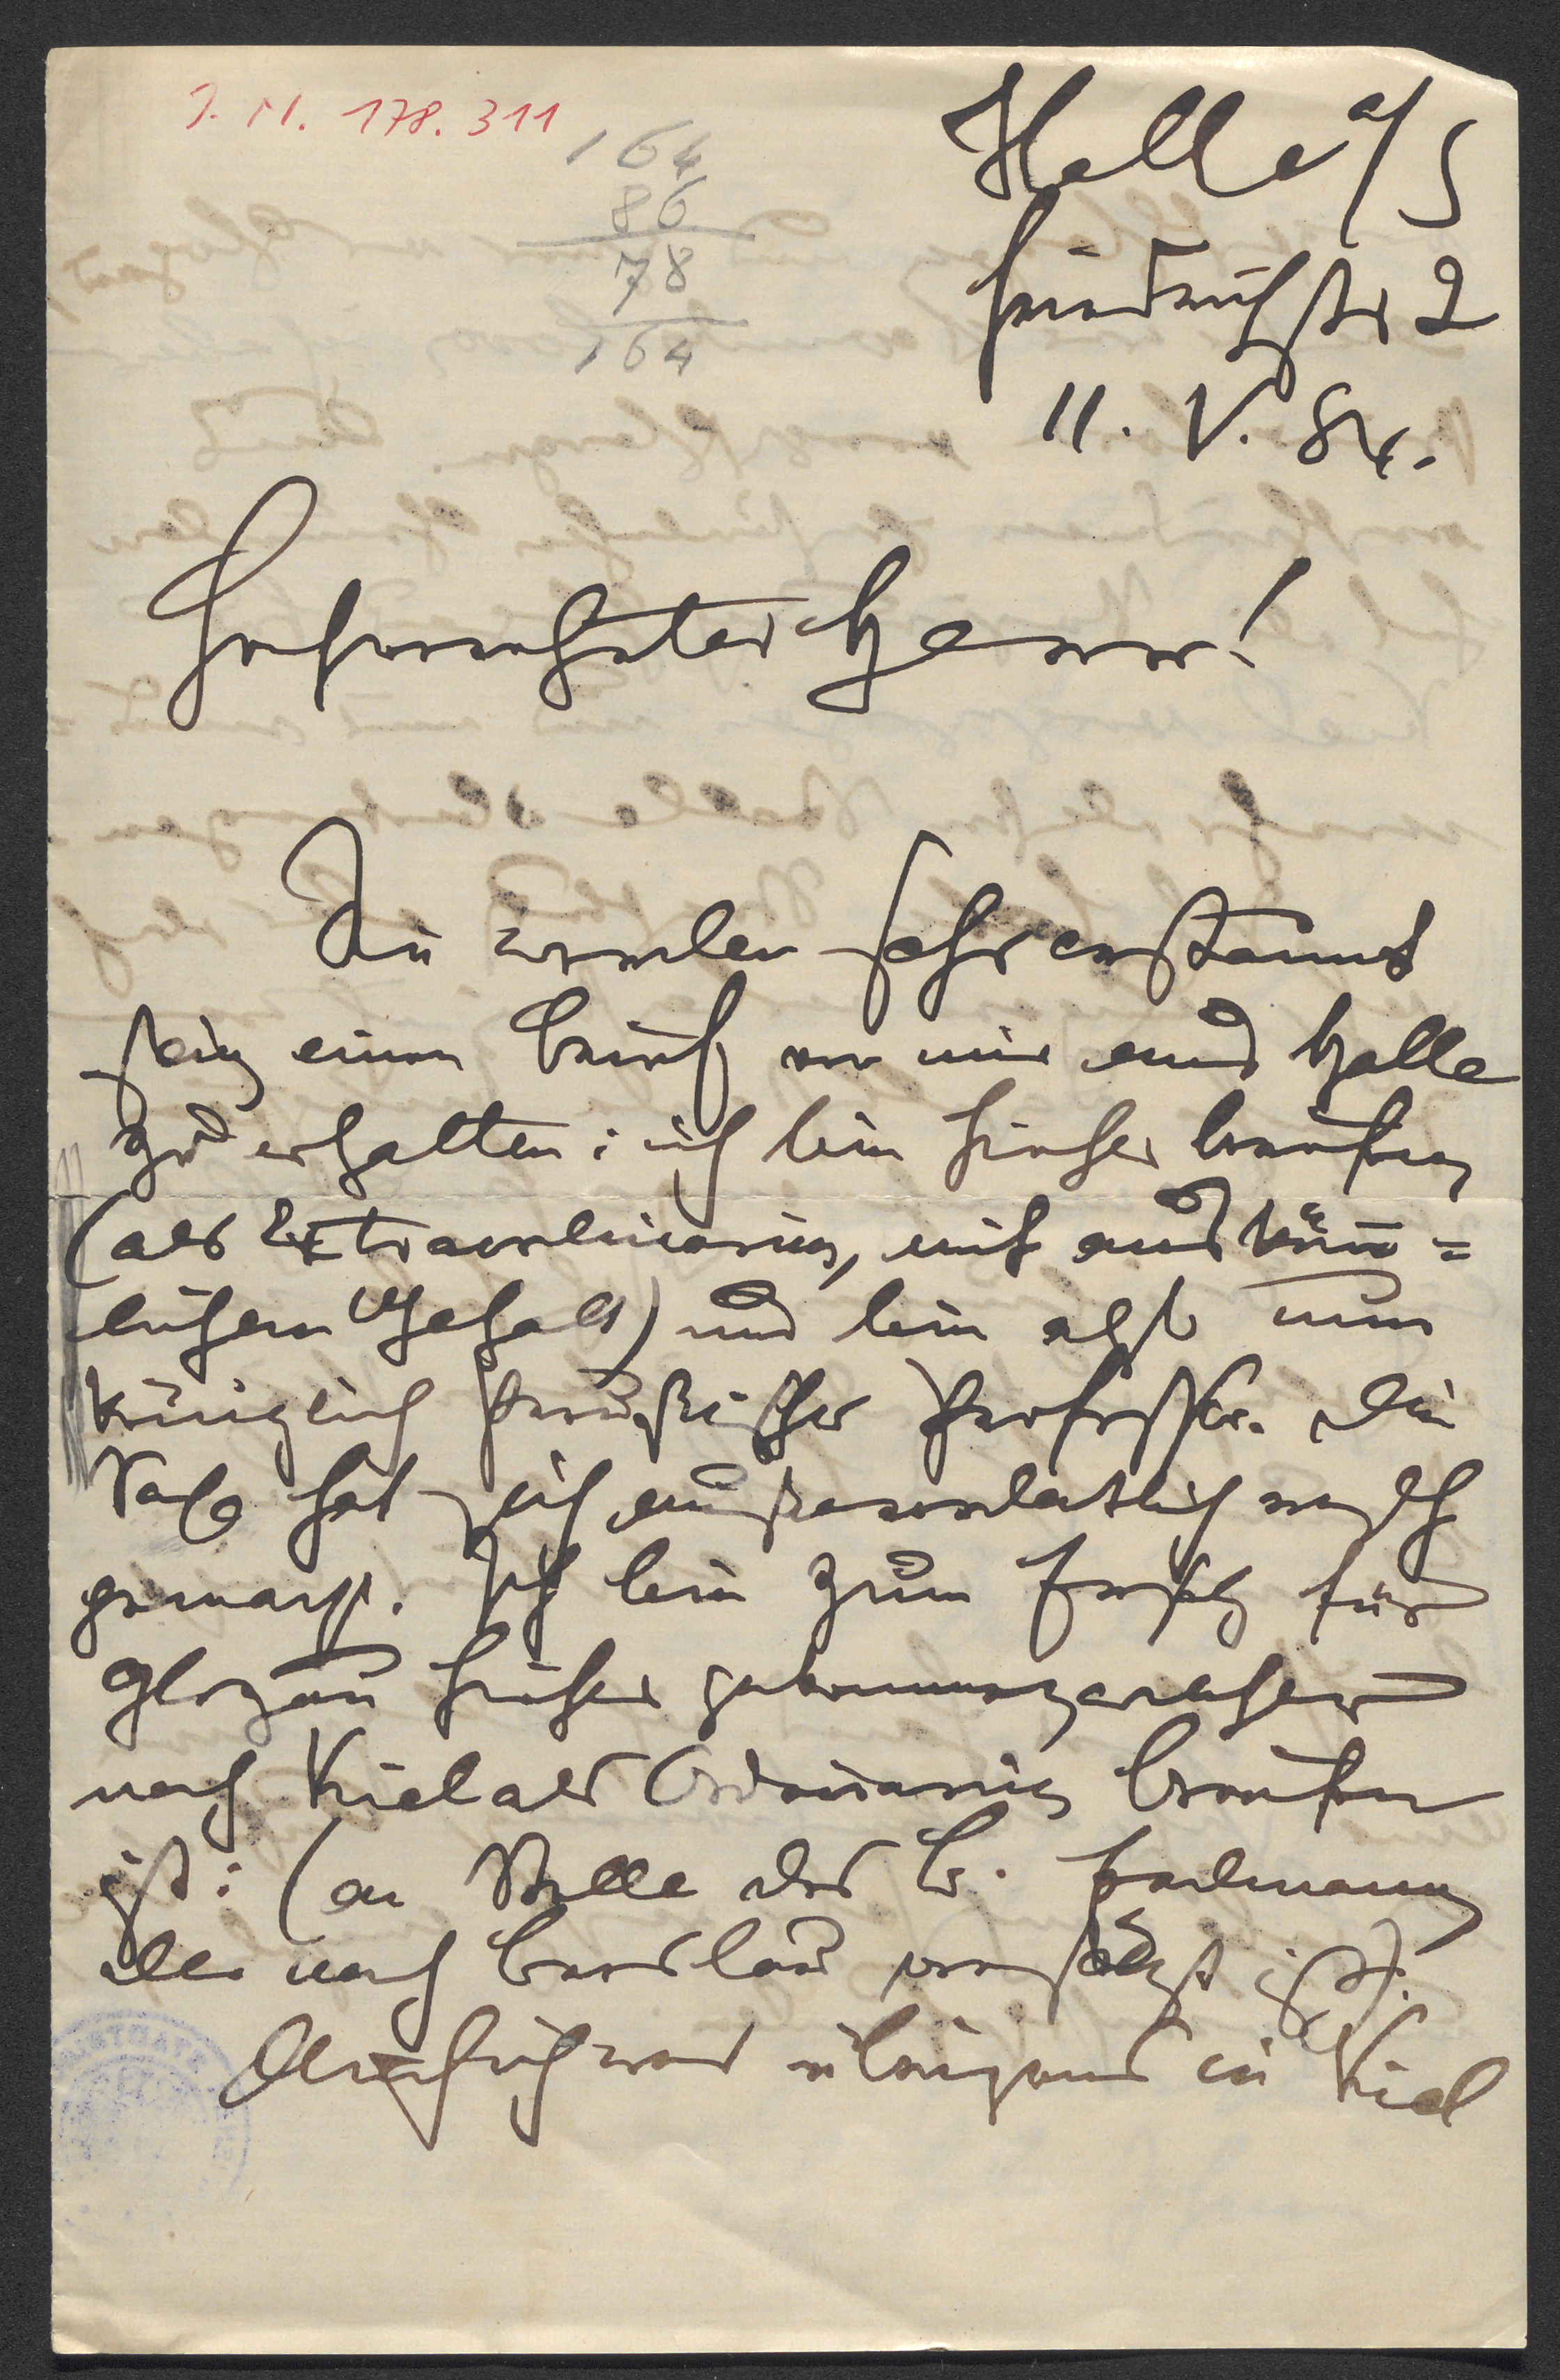 J. N. 178.311
164
86
78
164
Halle a/S
Friedrichstr 2
11. V. 84.
Hochverehrter Herr!
Sie werden sehr erstaunt
sein einen Brief von mir aus Halle
zu erhalten: ich bin hieher berufen
(als Extraordinarius, mit auskömm=
lichem Gehalt) und bin also nun
königlich preußischer Professor. Die
Sache hat sich außerordentlich rasch
gemacht. Ich bin zum Ersatz für
Glogau hieher gekommen, welcher
nach Kiel als Ordinarius berufen
ist: (an Stelle des B. Erdmann,
der nach Breslau versetzt ist).
übrigens in Kiel